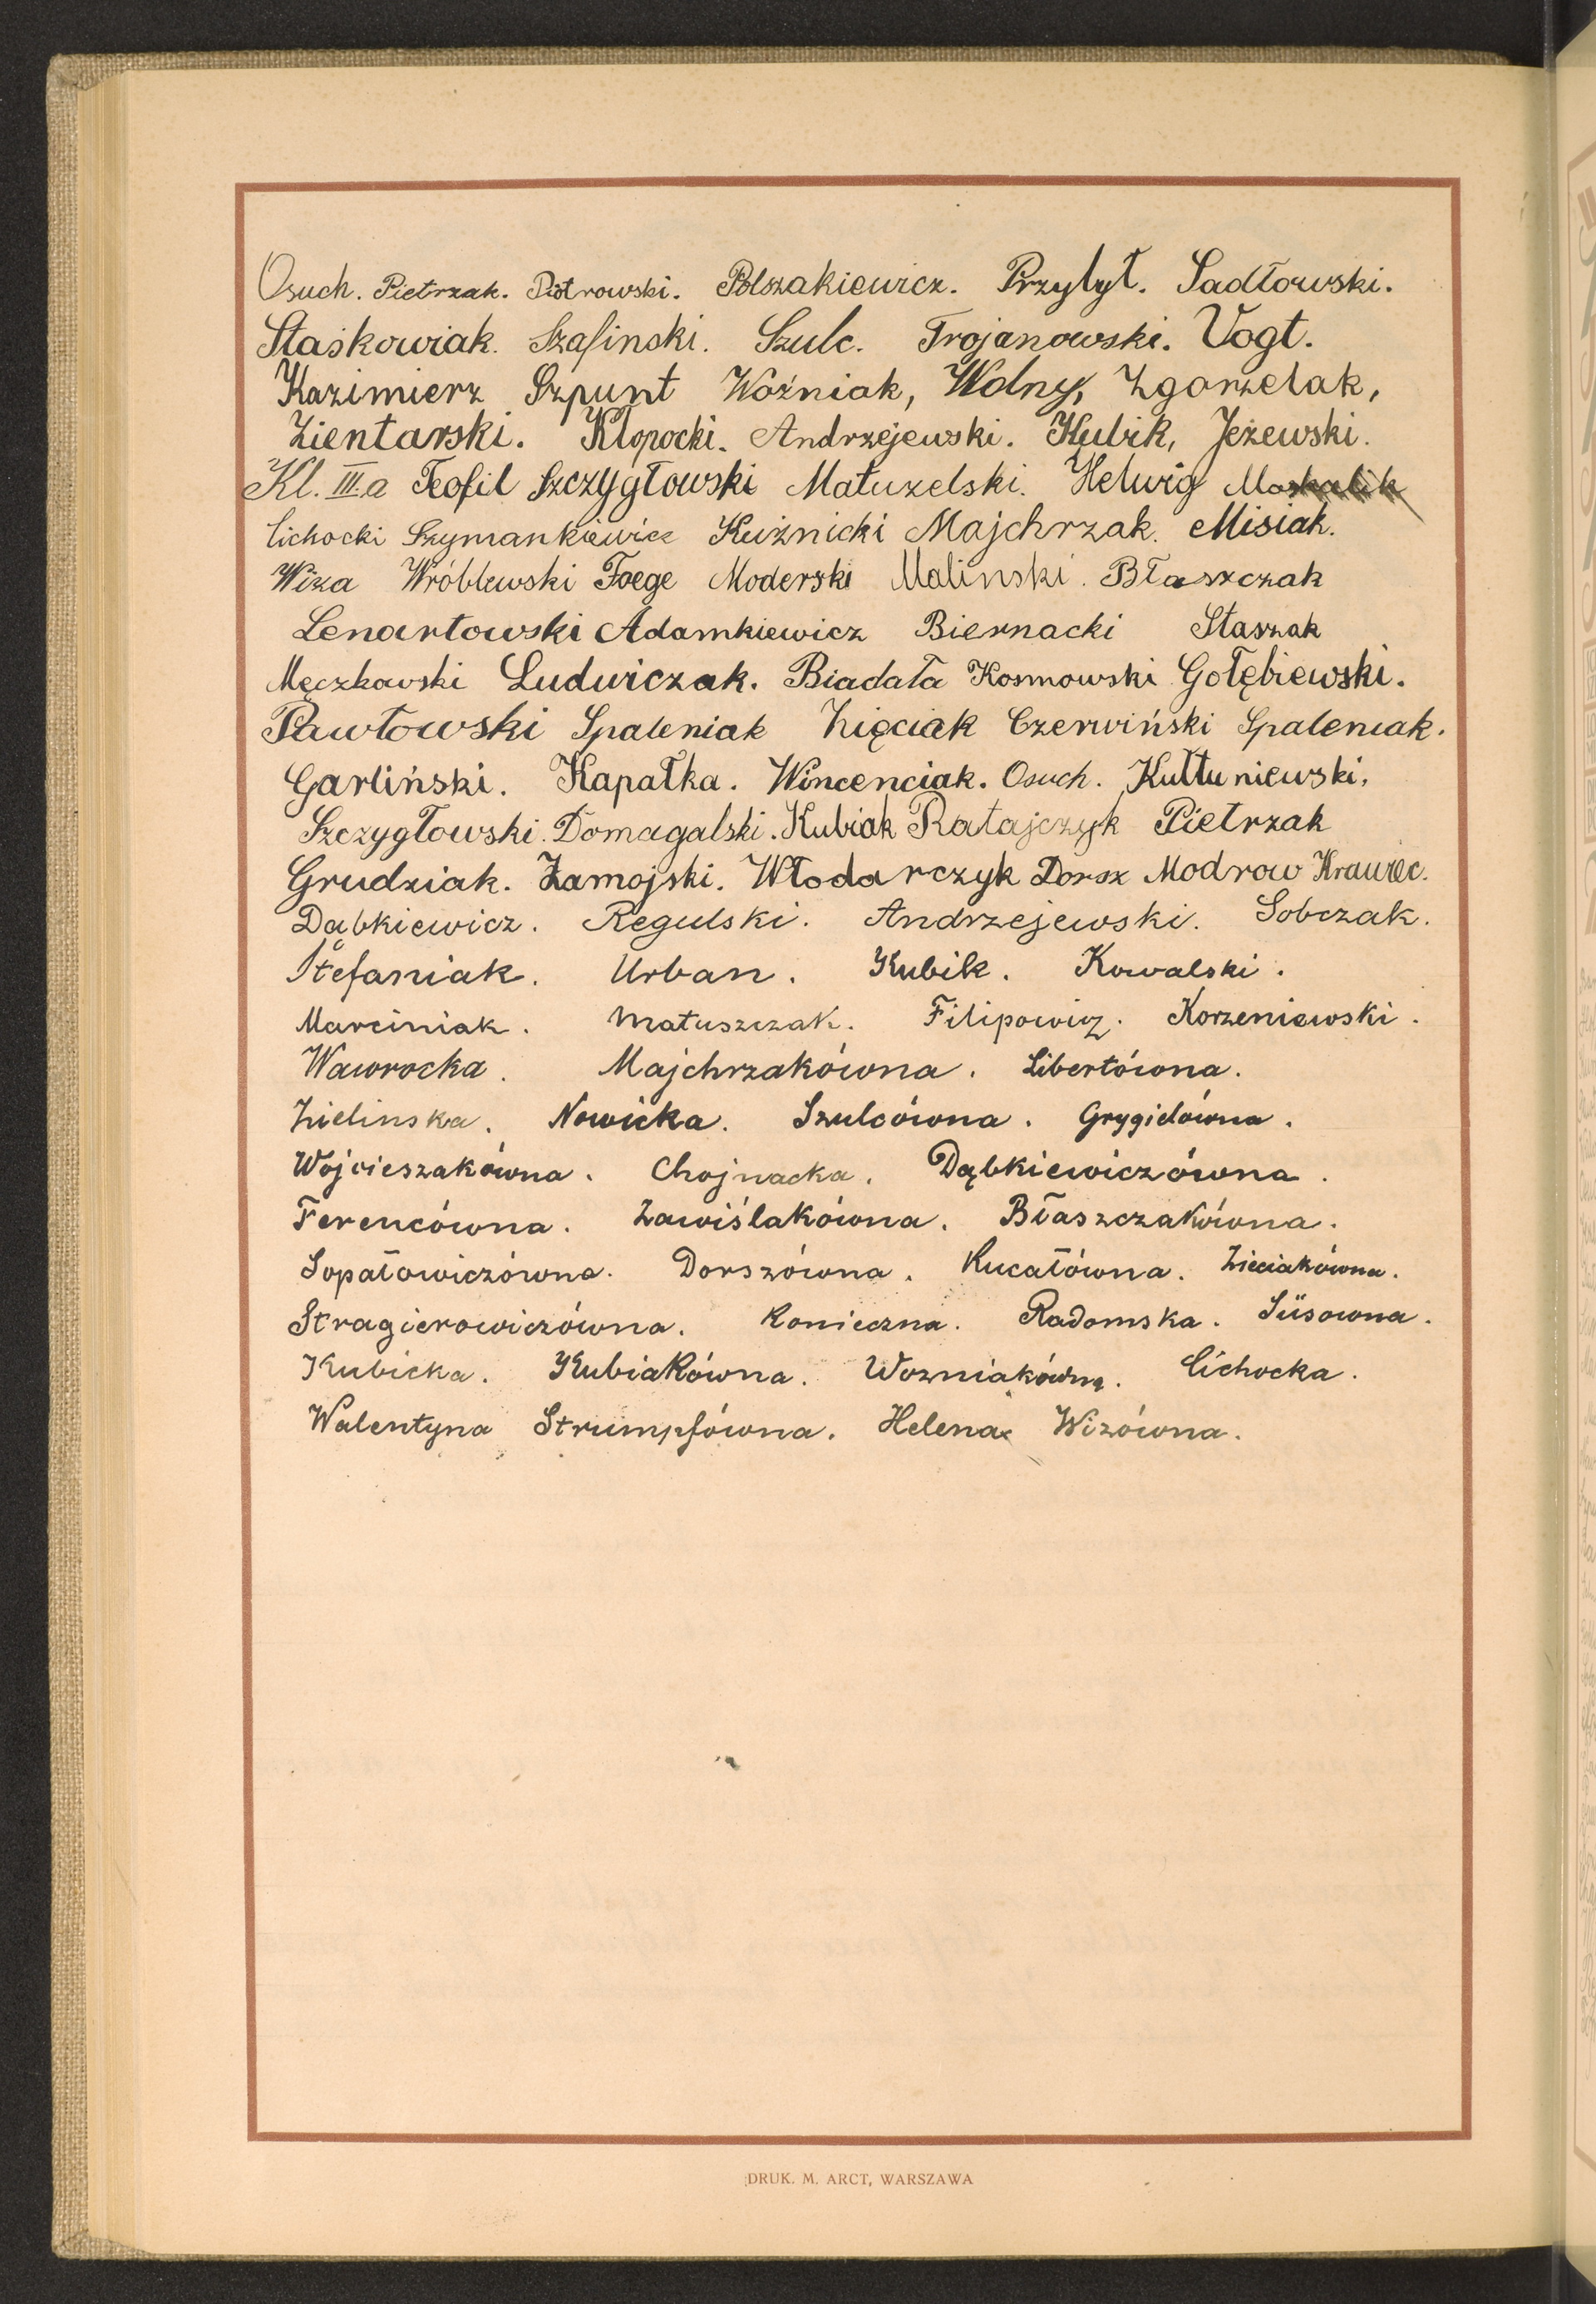 Osuch. Pietrzak. Piotrowski. Polszakiewicz. Przybył. Sadłowski.
Staśkowiak. Szafinski. Szulc. Trojanowski. Vogt.
Kazimierz Szpunt Woźniak, Wolny, Zgorzelak,
Zientarski. Kłopocki. Andrzejewski. Kubik, Jeżewski.
Kl. III.a Teofil Szczygłowski Matuzelski. Helwig Moskalik
Cichocki Szymankiewicz Kuźnicki Majchrzak. Misiak.
Wiza Wróblewski Foege Moderski Malinski. Błaszczak
Lenartowski Adamkiewicz Biernacki Staszak
Męczkowski Ludwiczak. Biadała Kosmowski Gołębiewski.
Pawłowski Spaleniak Zięciak Czerwiński Spaleniak.
Garliński. Kapałka. Wincenciak. Osuch. Kułtuniewski,
Szczygłowski. Domagalski. Kubiak Ratajczyk Pietrzak
Grudziak. Zamojski. Włodarczyk Dorsz Modrow Krawiec.
Dąbkiewicz. Regulski. Andrzejewski. Sobczak.
Stefaniak. Urban. Kubik. Kowalski.
Marciniak. Matuszczak. Filipowicz. Korzeniewski.
Wawrocka. Majchrzakówna. Libertówna.
Zielinska. Nowicka. Szulcówna. Grygielówna.
Wojcieszakówna. Chojnacka. Dąbkiewiczówna.
Ferencówna. Zawiślakówna. Błaszczakówna.
Sopałowiczówna. Dorszówna. Kucałówna. Zieciakówna.
Stragierowiczówna. Konieczna. Radomska. Süsowna.
Kubicka. Kubiakówna. Wozniakówna. Cichocka.
Walentyna Strumpfówna. Helena Wizówna.
DRUK. M. ARCT, WARSZAWA